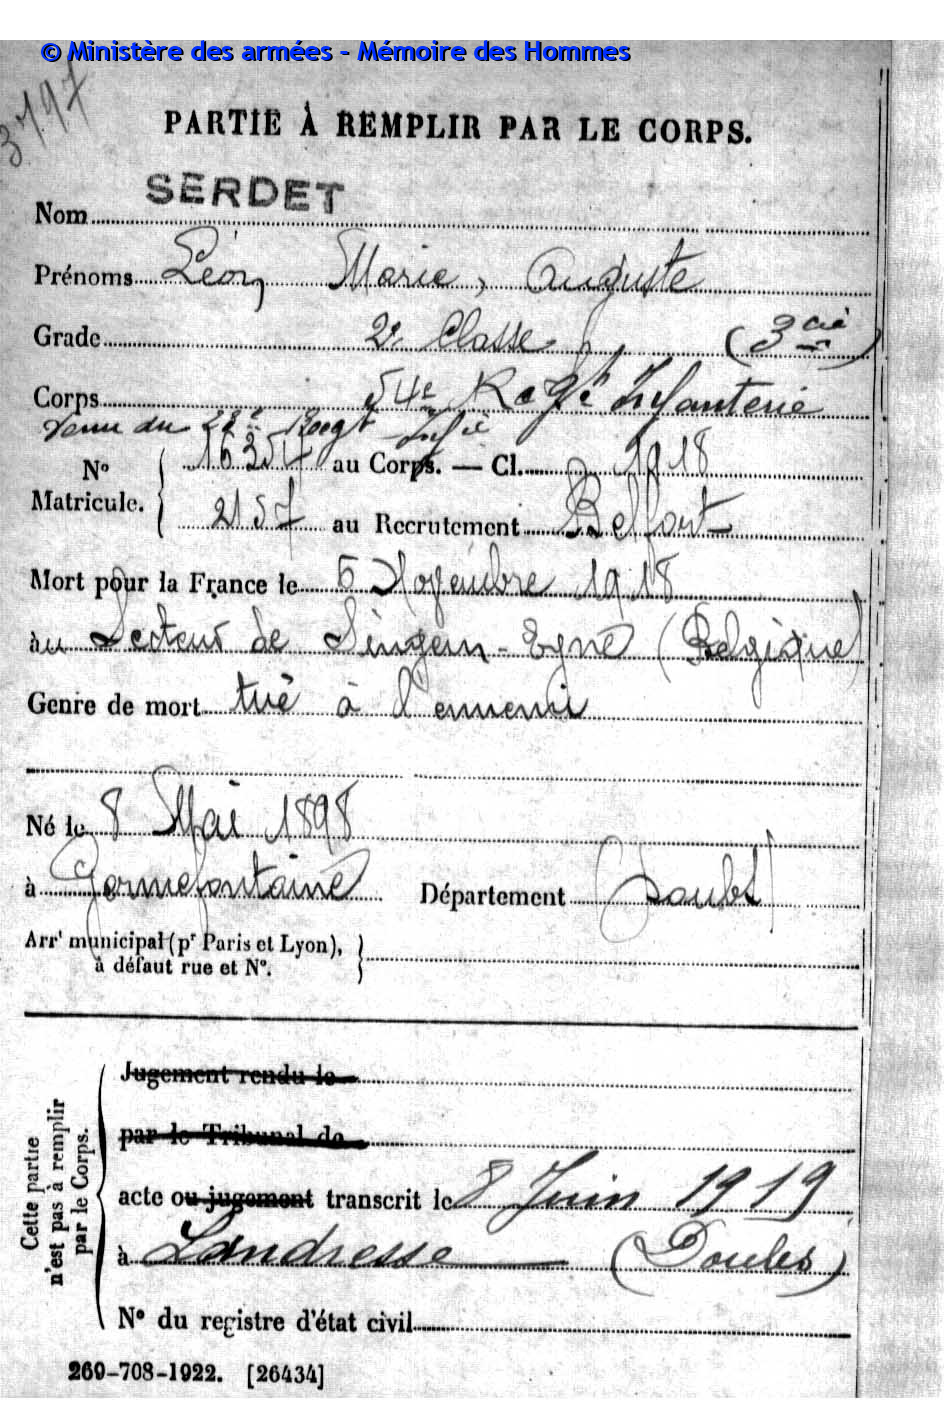 © Ministère des armées - Mémoire des Hommes
3797
PARTIE À REMPLIR PAR LE CORPS.
Nom SERDET
Prénoms Léon, Marie, Auguste
Grade 2e Classe (3 cie)
Corps 54e Regt Infanterie
Venu du 23e Regt Infie
No Matricule. { 16254 au Corps. — Cl. 1918
2157 au Recrutement Belfort
Mort pour la France le 5 Novembre 1918
au Secteur de Singem-Eyne (Belgique)
Genre de mort tué à l'ennemi
Né le 8 Mai 1898
à Germéfontaine Département (Doubs)
Arrt municipal (pr Paris et Lyon), }
à défaut rue et No.
Cette partie
n'est pas à remplir
par le Corps.
Jugement rendu le
par le Tribunal de
acte ou jugement transcrit le 8 Juin 1919
à Landresse (Doubs)
No du registre d'état civil
269-708-1922. [26434]